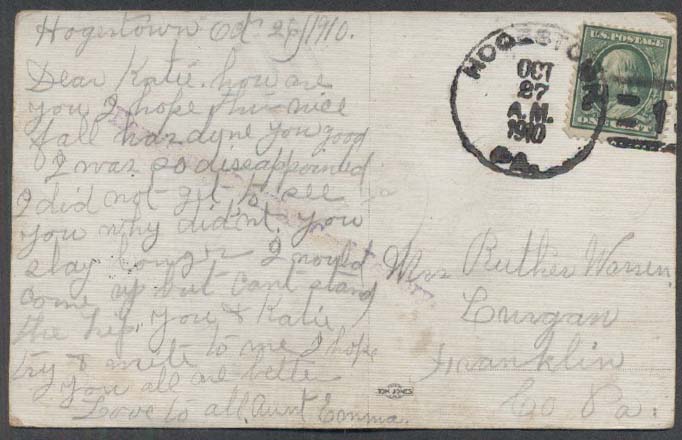 Hogestown Oct 26/1910.
Dear Katie. how are
you I hope this nice
fall has dyne you good
I was so diseappoined
I did not get to see
you why didn't you
stay longer I would
come up but cant stand
the trip, you & Katie
try & write to me I hope
you all are better
Love to all, Aunt Emma.
HOGESTOWN
OCT
27
A.M.
1910
PA.
U.S. POSTAGE
ONE CENT
1
Mrs Ruther Warren
Lurgan
Franklin
Co Pa.
TOM JONES